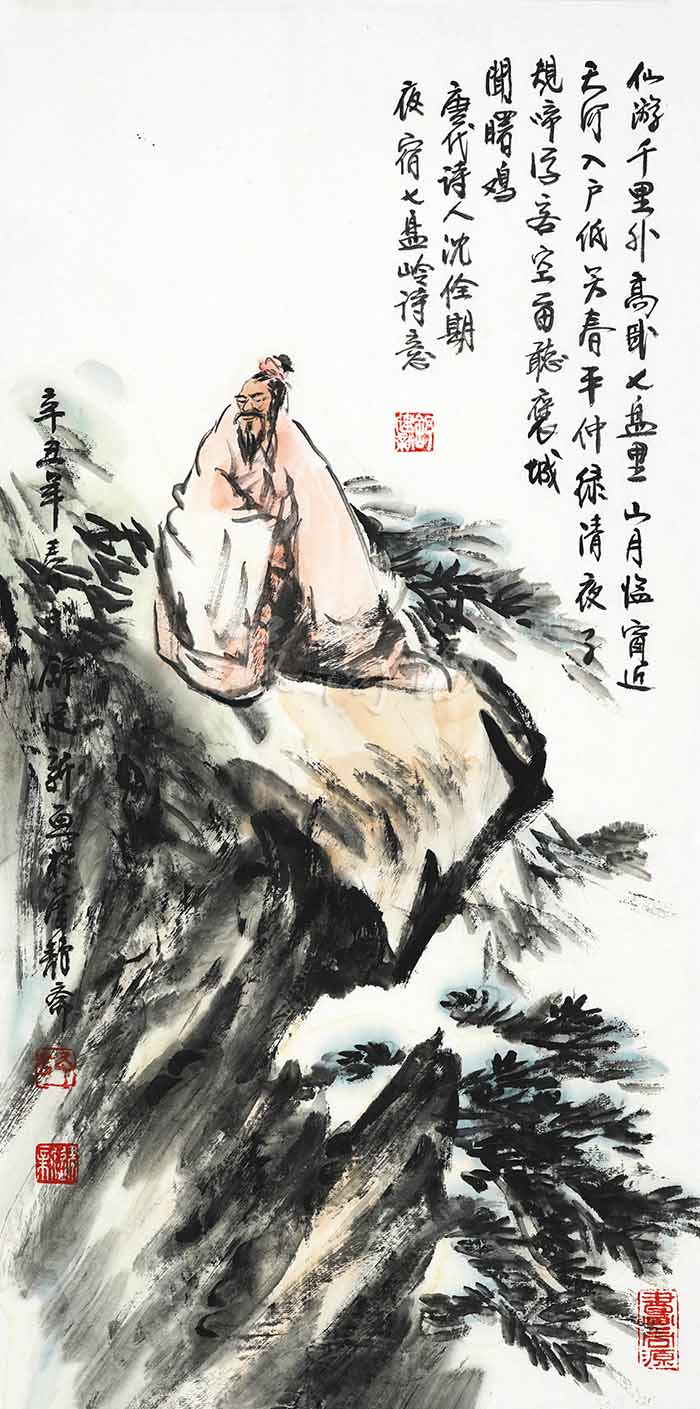 仙游千里外高卧七盘里山月临窗近
天河入户低芳春平仲绿清夜子
規啼浮客空留聽褒城
聞曙鸡
唐代诗人沈佺期
夜宿七盘岭诗意
辛丑年春舒建新画於清静斋